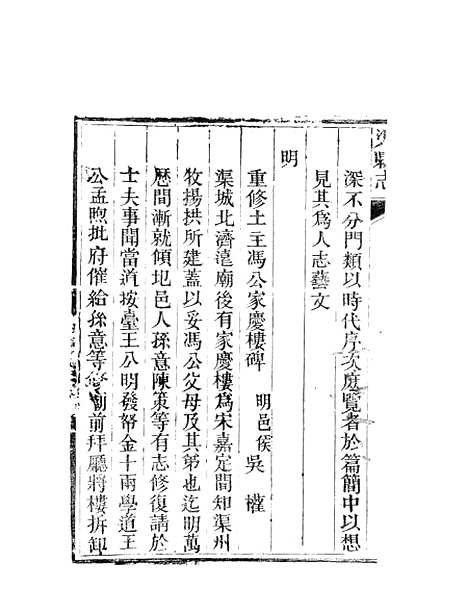 渠縣志
深不分門類以時代序次庶覽者於篇簡中以想
見其爲人志藝文
明
重修土主馮公家慶樓碑 明邑侯吳權
渠城北濟遠廟後有家慶樓爲宋嘉定間知渠州
牧揚拱所建蓋以妥馮公父母及其弟也迄明萬
厯間漸就傾圯邑人孫意陳策等有志修復請於
士夫事聞當道按臺王公明發帑金十兩學道王
公孟煦批府催給孫意等修廟前拜廳將樓拆卸